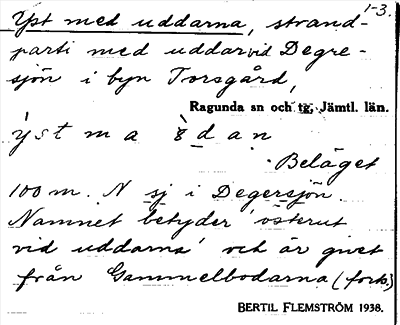 1-3.
Yst med uddarna, strand-
parti med uddar vid Degre-
sjön i byn Torsgård,
Ragunda sn och tg, Jämtl. län.
ỳst m a 8 d a n
Beläget
100 m. N sj i Degersjön.
Namnet betyder 'österut
vid uddarna' och är givet
från Gammelbodarna (forts.)
BERTIL FLEMSTRÖM 1938.